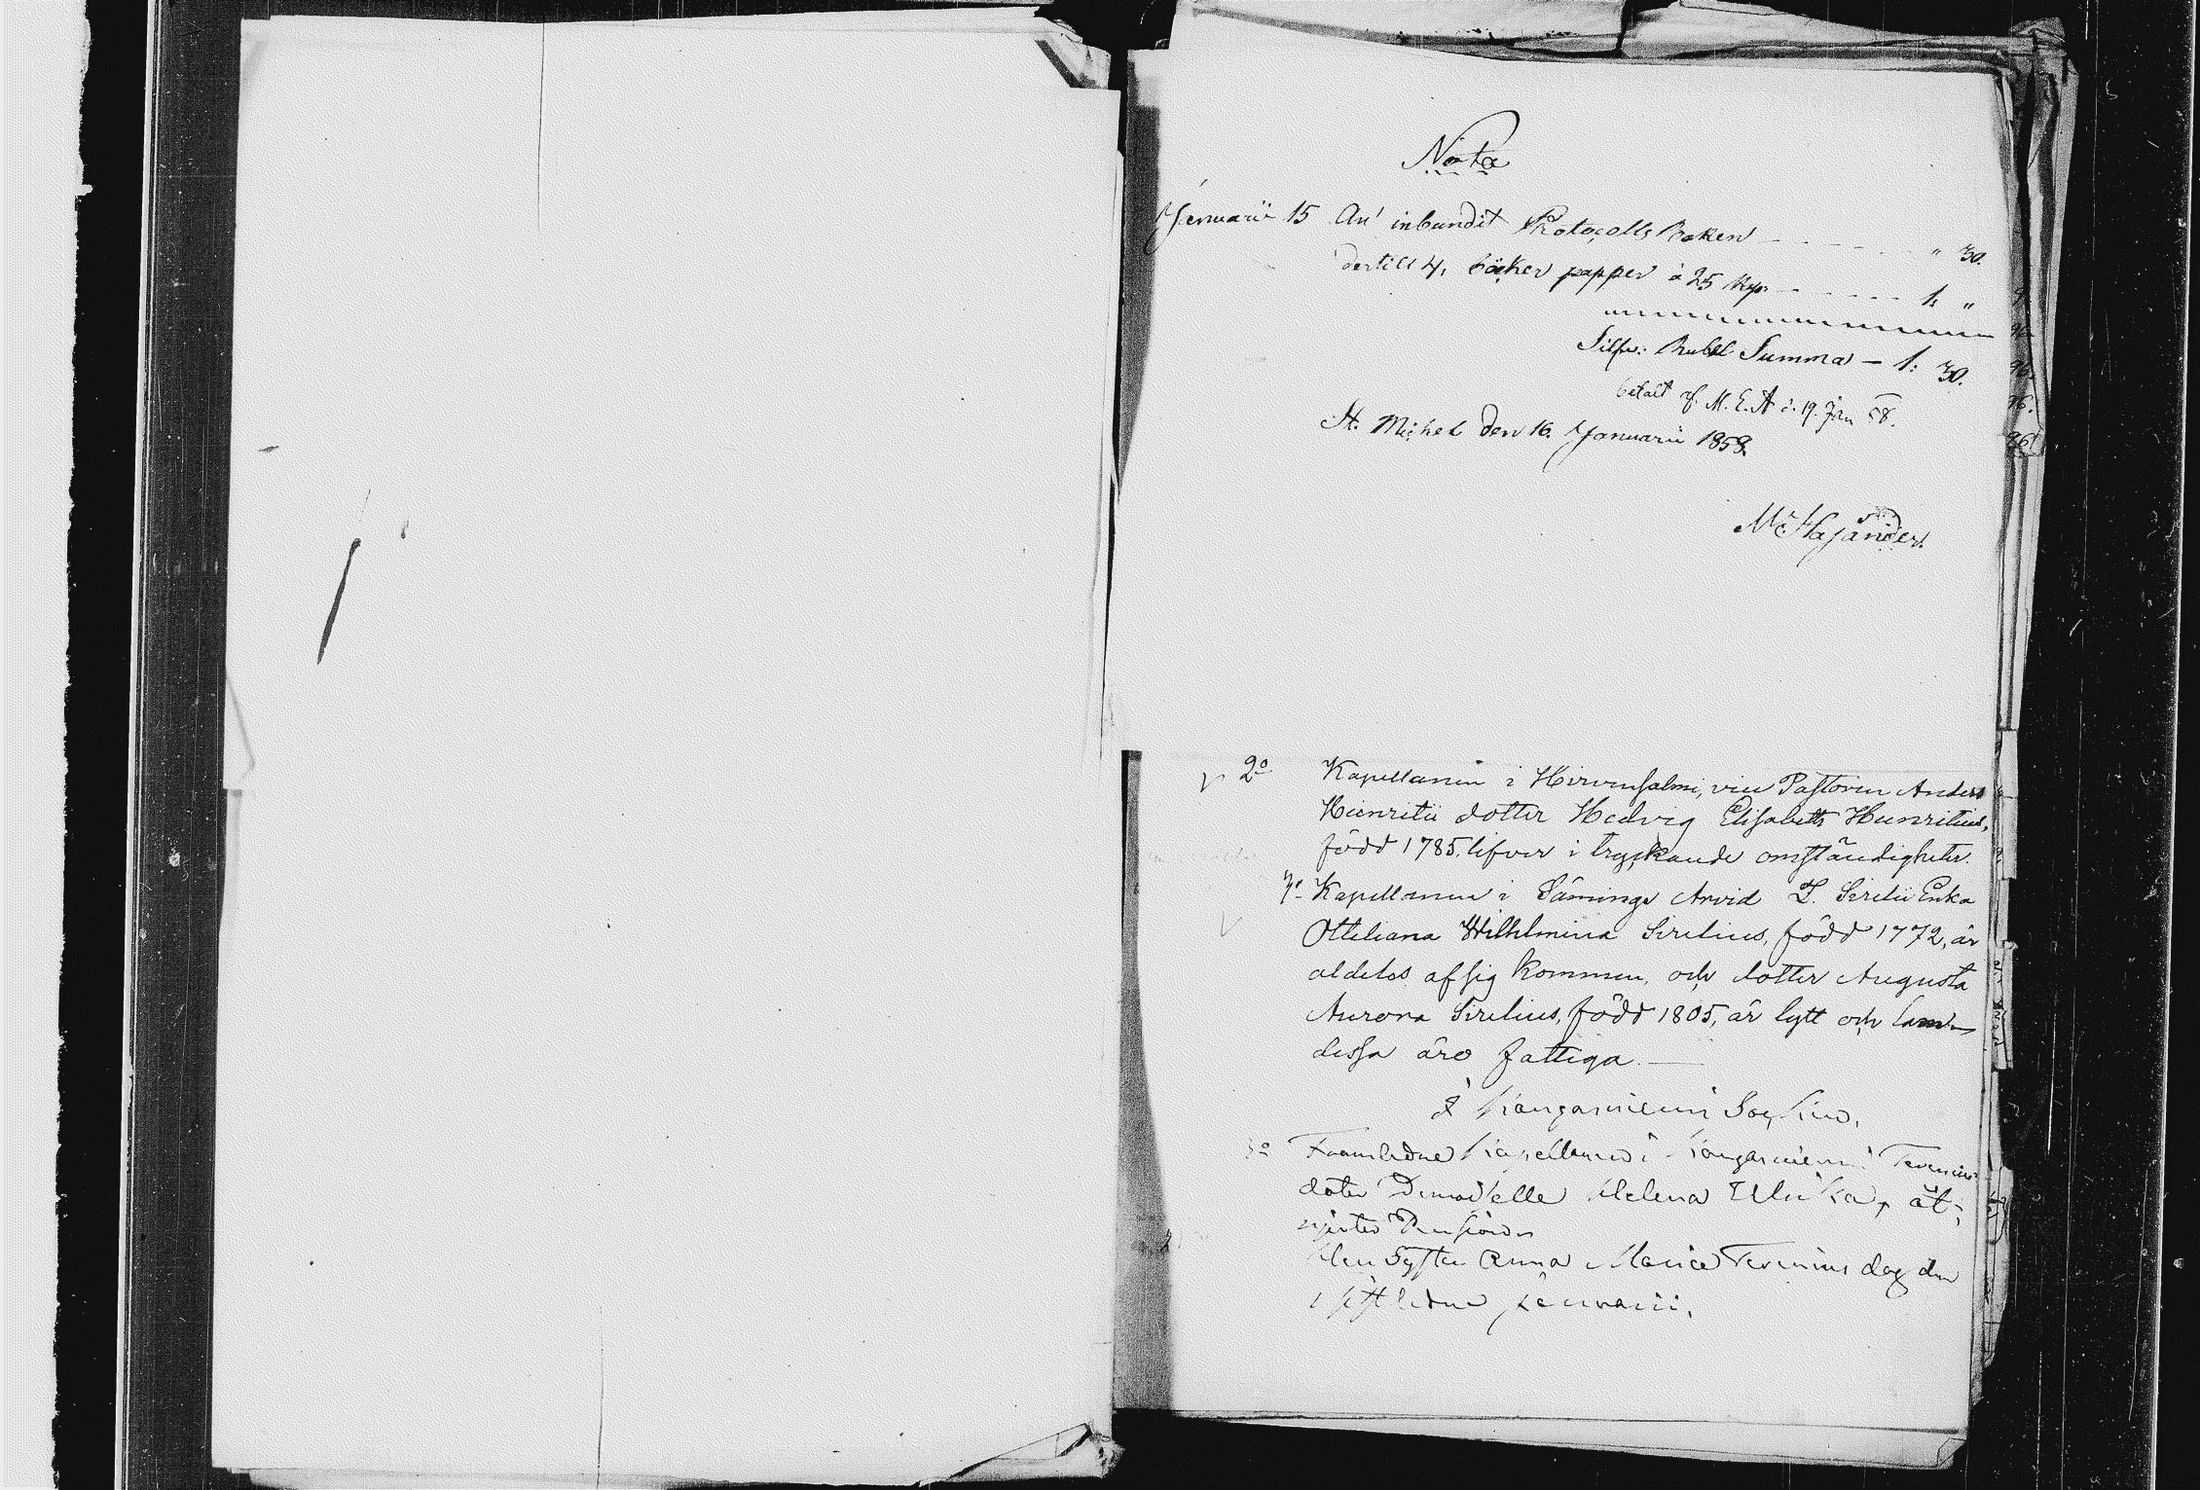 Nota
Januarii 15 An' inbundit Protocolls Boken - - - - " 30.
dertill 4, böcker papper à 25 kop. - - - - 1, "
Silfv: Rubel Summa - 1: 30.
betalt af M. E. A d. 19. Jan 58.
St. Michel den 16. Januarii 1858.
2o Kapellanen i Hirvensalmi, vice Pastoren Anders
Heinricii dotter Hedvig Elisabeth Heinricius,
född 1785, lefver i tryckande omständigheter.
3o Kapellanen i Säminge Arvid I. Sirelii Enka
Ottiliana Wilhelmina Sirelius, född 1772, är
aldeles af sig kommen, och dotter Augusta
Aurora Sirelius, född 1805, är lytt och lam
dessa äro fattiga. —
I Kangasniemi Socken.
3o Framledne Kapellanen i Kangasniemi Terenius
doter Demoiselle Helena Ulrika, åt-
njuter Pension
Hen Syster Anna Maria Terenius dog den
1 sistledne januarii.